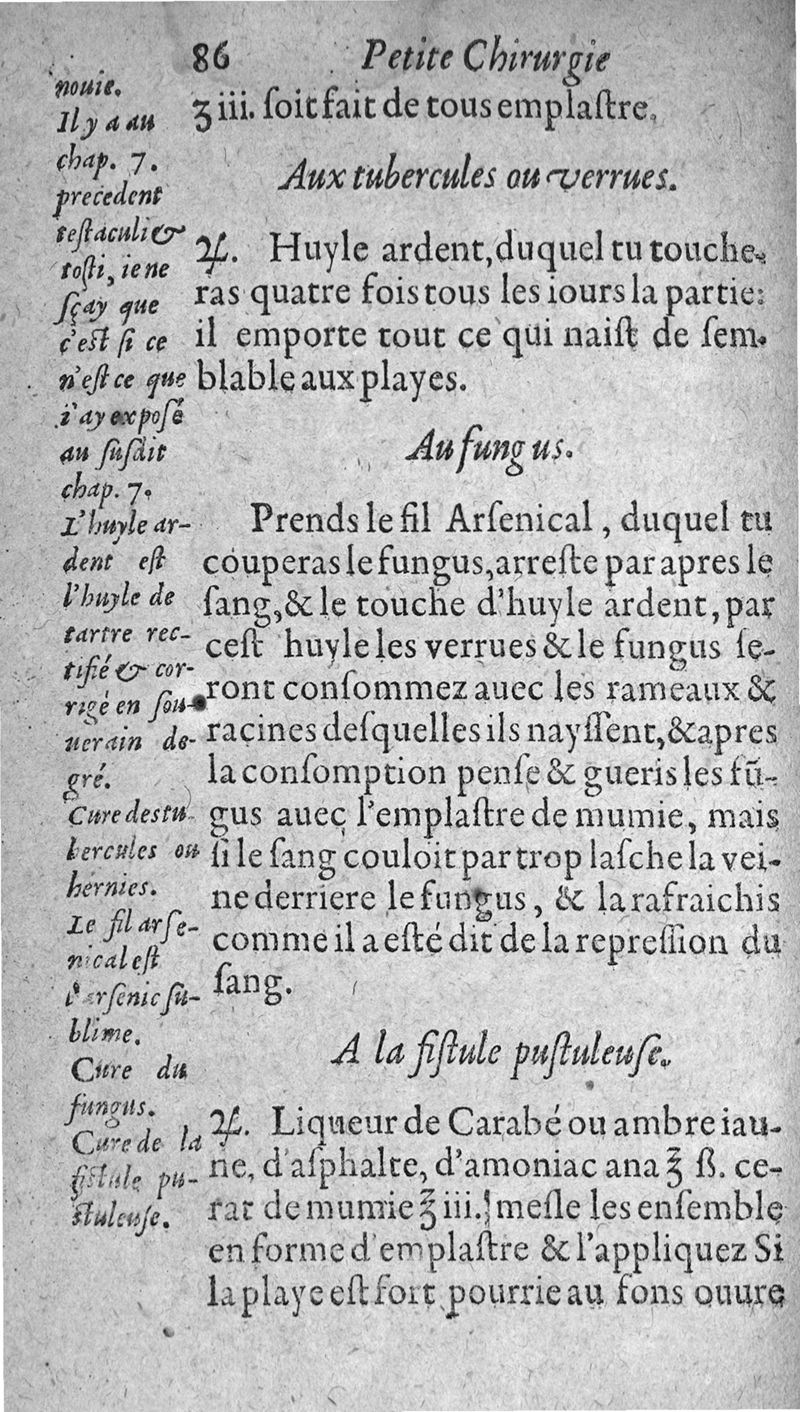 86 Petite Chirurgie
ʒ iii. ſoit fait de tous emplaſtre.
Aux tubercules ou verrues.
♃. Huyle ardent, duquel tu touche-
ras quatre fois tous les iours la partie:
il emporte tout ce qui naiſt de ſem-
blable aux playes.
Au fungus.
Prends le fil Arſenical, duquel tu
couperas le fungus, arreſte par apres le
ſang, & le touche d'huyle ardent, par
ceſt huyle les verrues & le fungus ſe-
ront conſommez auec les rameaux &
racines deſquelles ils nayſſent, & apres
la conſomption penſe & gueris les fũ-
gus auec l'emplaſtre de mumie, mais
ſi le ſang couloit par trop laſche la vei-
ne derriere le fungus, & la rafraichis
comme il a eſté dit de la repreſſion du
ſang.
A la fiſtule puſtuleuſe.
♃. Liqueur de Carabé ou ambre iau-
ne, d'aſphalte, d'amoniac ana ℥ ß. ce-
rat de mumie ℥ iii. meſle les enſemble
en forme d'emplaſtre & l'appliquez Si
la playe eſt fort pourrie au fons ouure
nouie.
Il y a au
chap. 7.
precedent
teſtaculi &
toſti, ie ne
ſçay que
c'eſt ſi ce
n'eſt ce que
i'ay expoſé
au ſuſdit
chap. 7.
L'huyle ar-
dent eſt
l'huyle de
tartre rec-
tifié & cor-
rigé en ſou-
uerain de-
gré.
Cure des tu
bercules ou
hernies.
Le fil arſe-
nical eſt
l'arſenic ſu-
blime.
Cure du
fungus.
Cure de la
fiſtule pu-
ſtuleuſe.